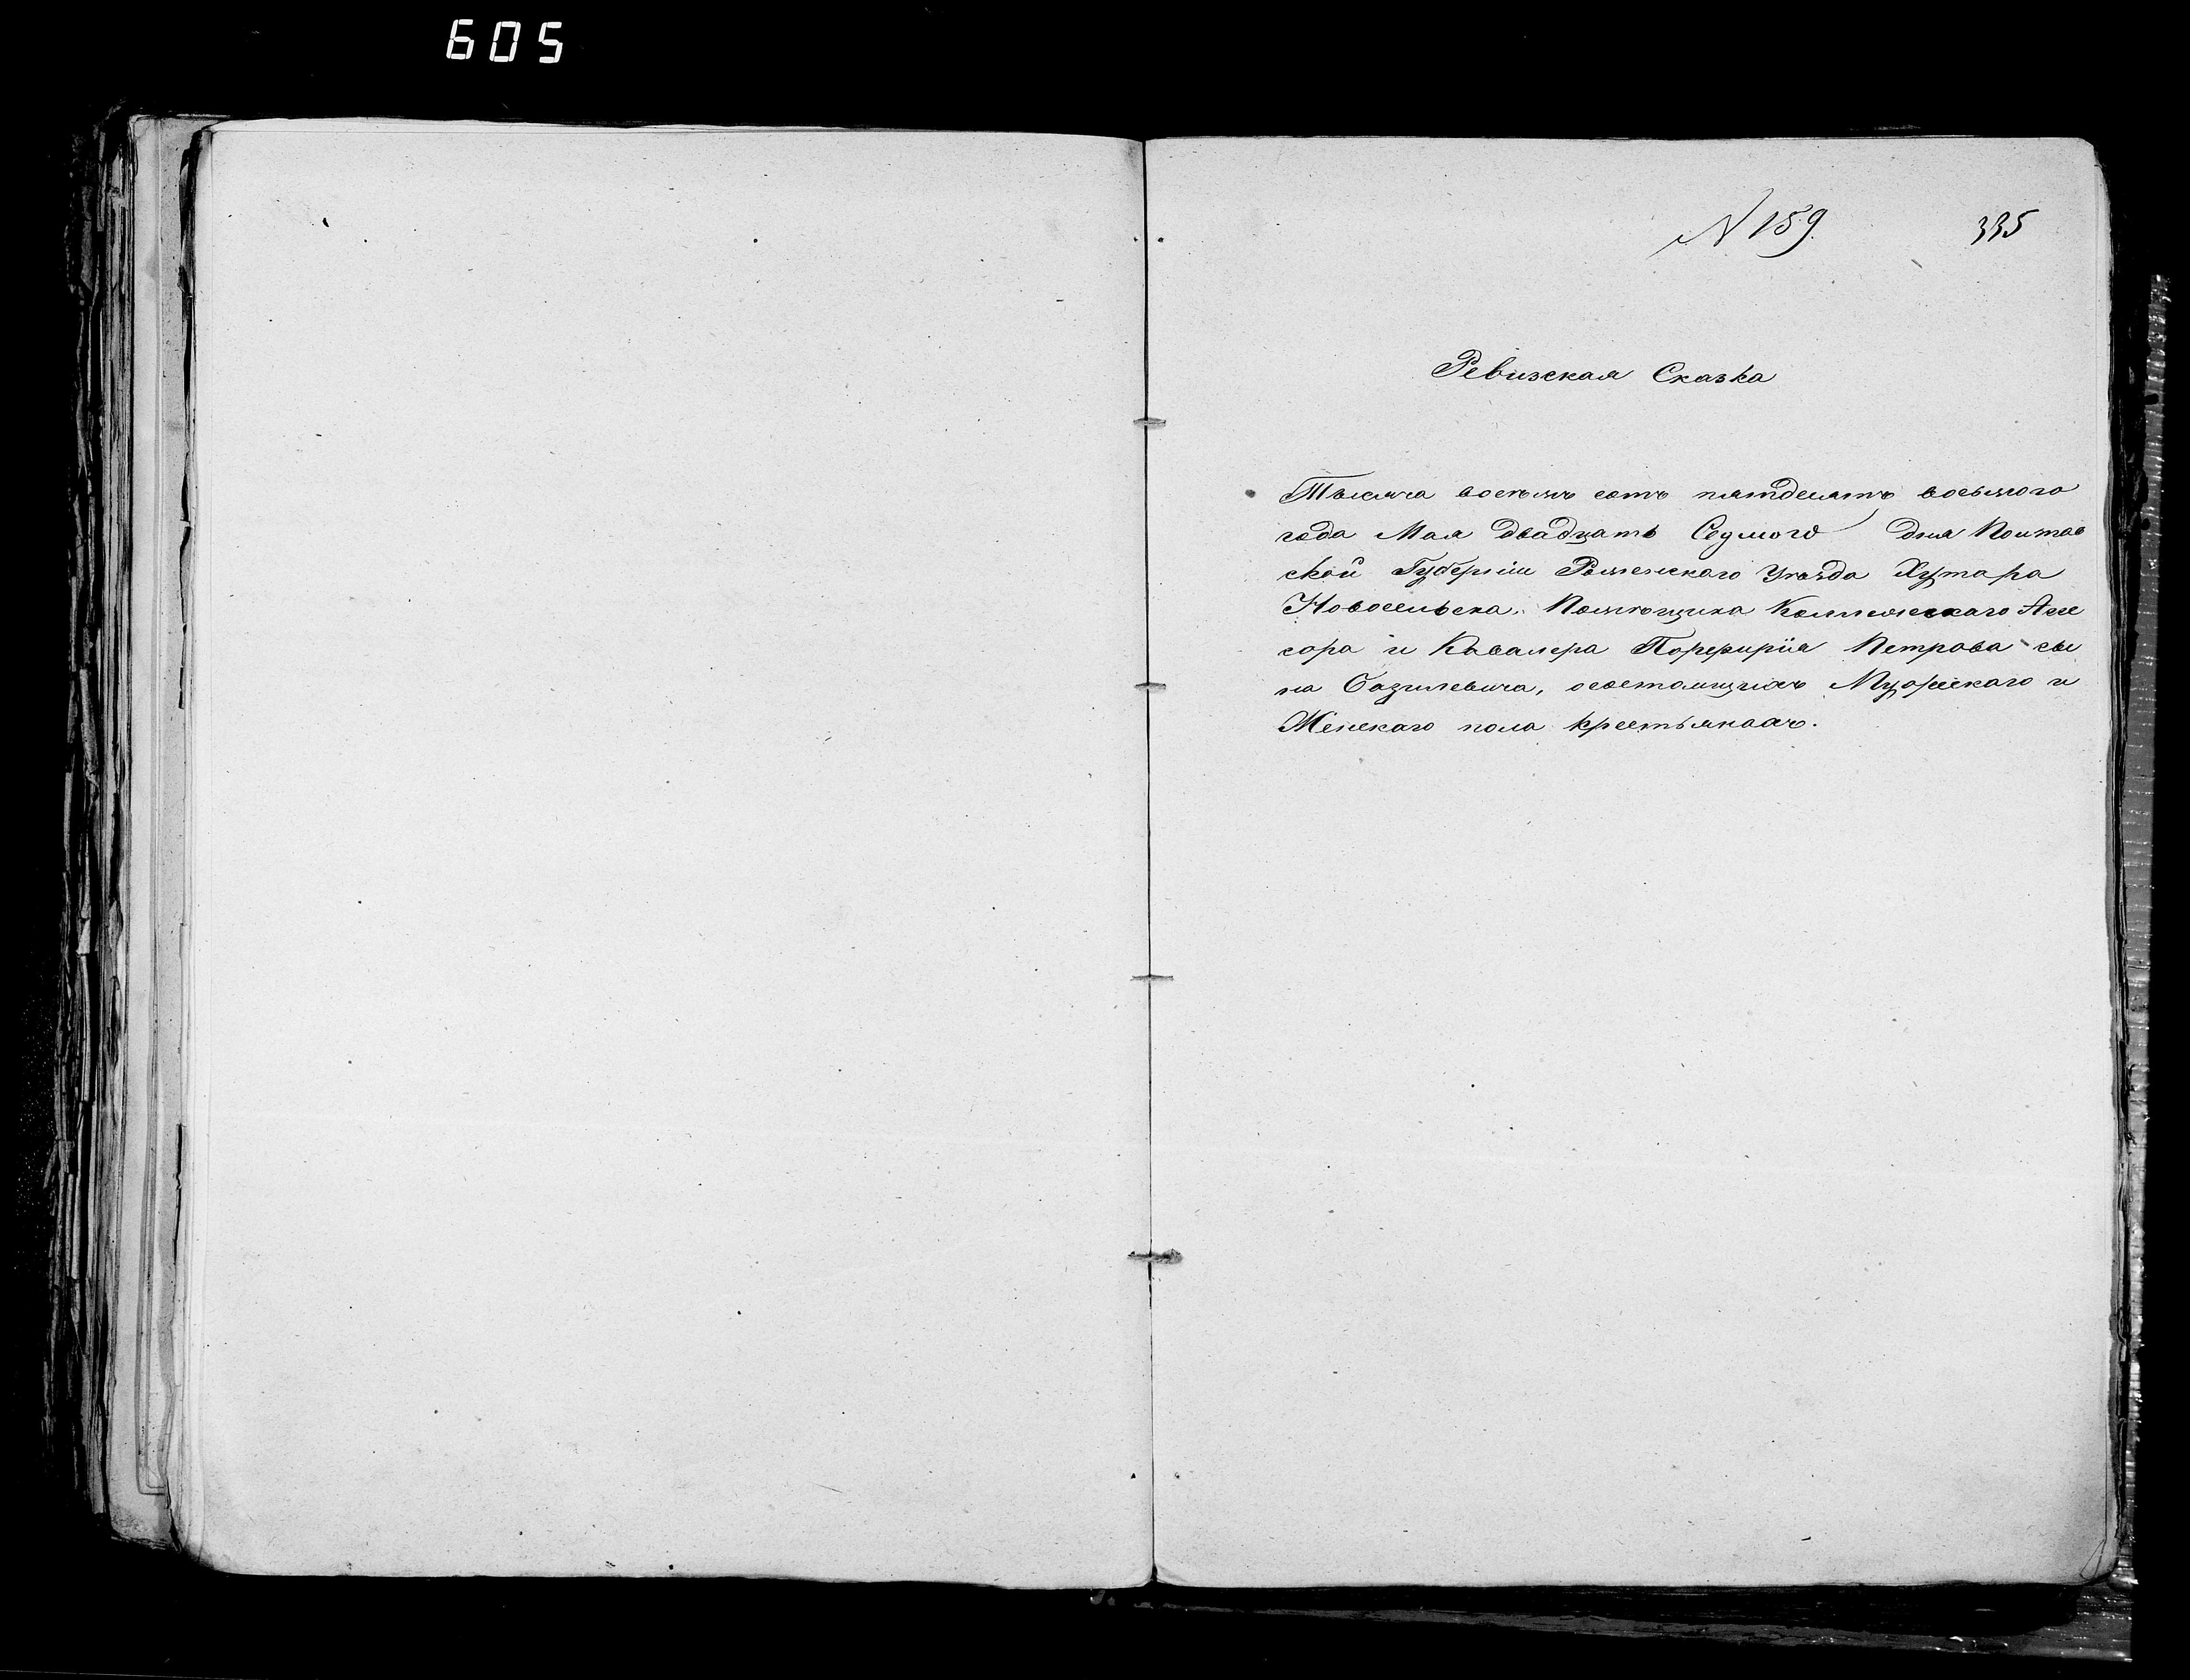 605
N 159.
335
Ревизская Сказка
Тысяча восемь сотъ пятдесятъ восьмого
года Мая двадцать Седмого дня Полтав
ской Губерніи Роменскаго Уѣзда Хутара
Новосельска, Помѣщика Коллежскаго Ассе
сора и Кавалера Порфирія Петрова сы
на Базилевича, осостоящихъ Мужескаго и
Женскаго пола крестьянахъ.